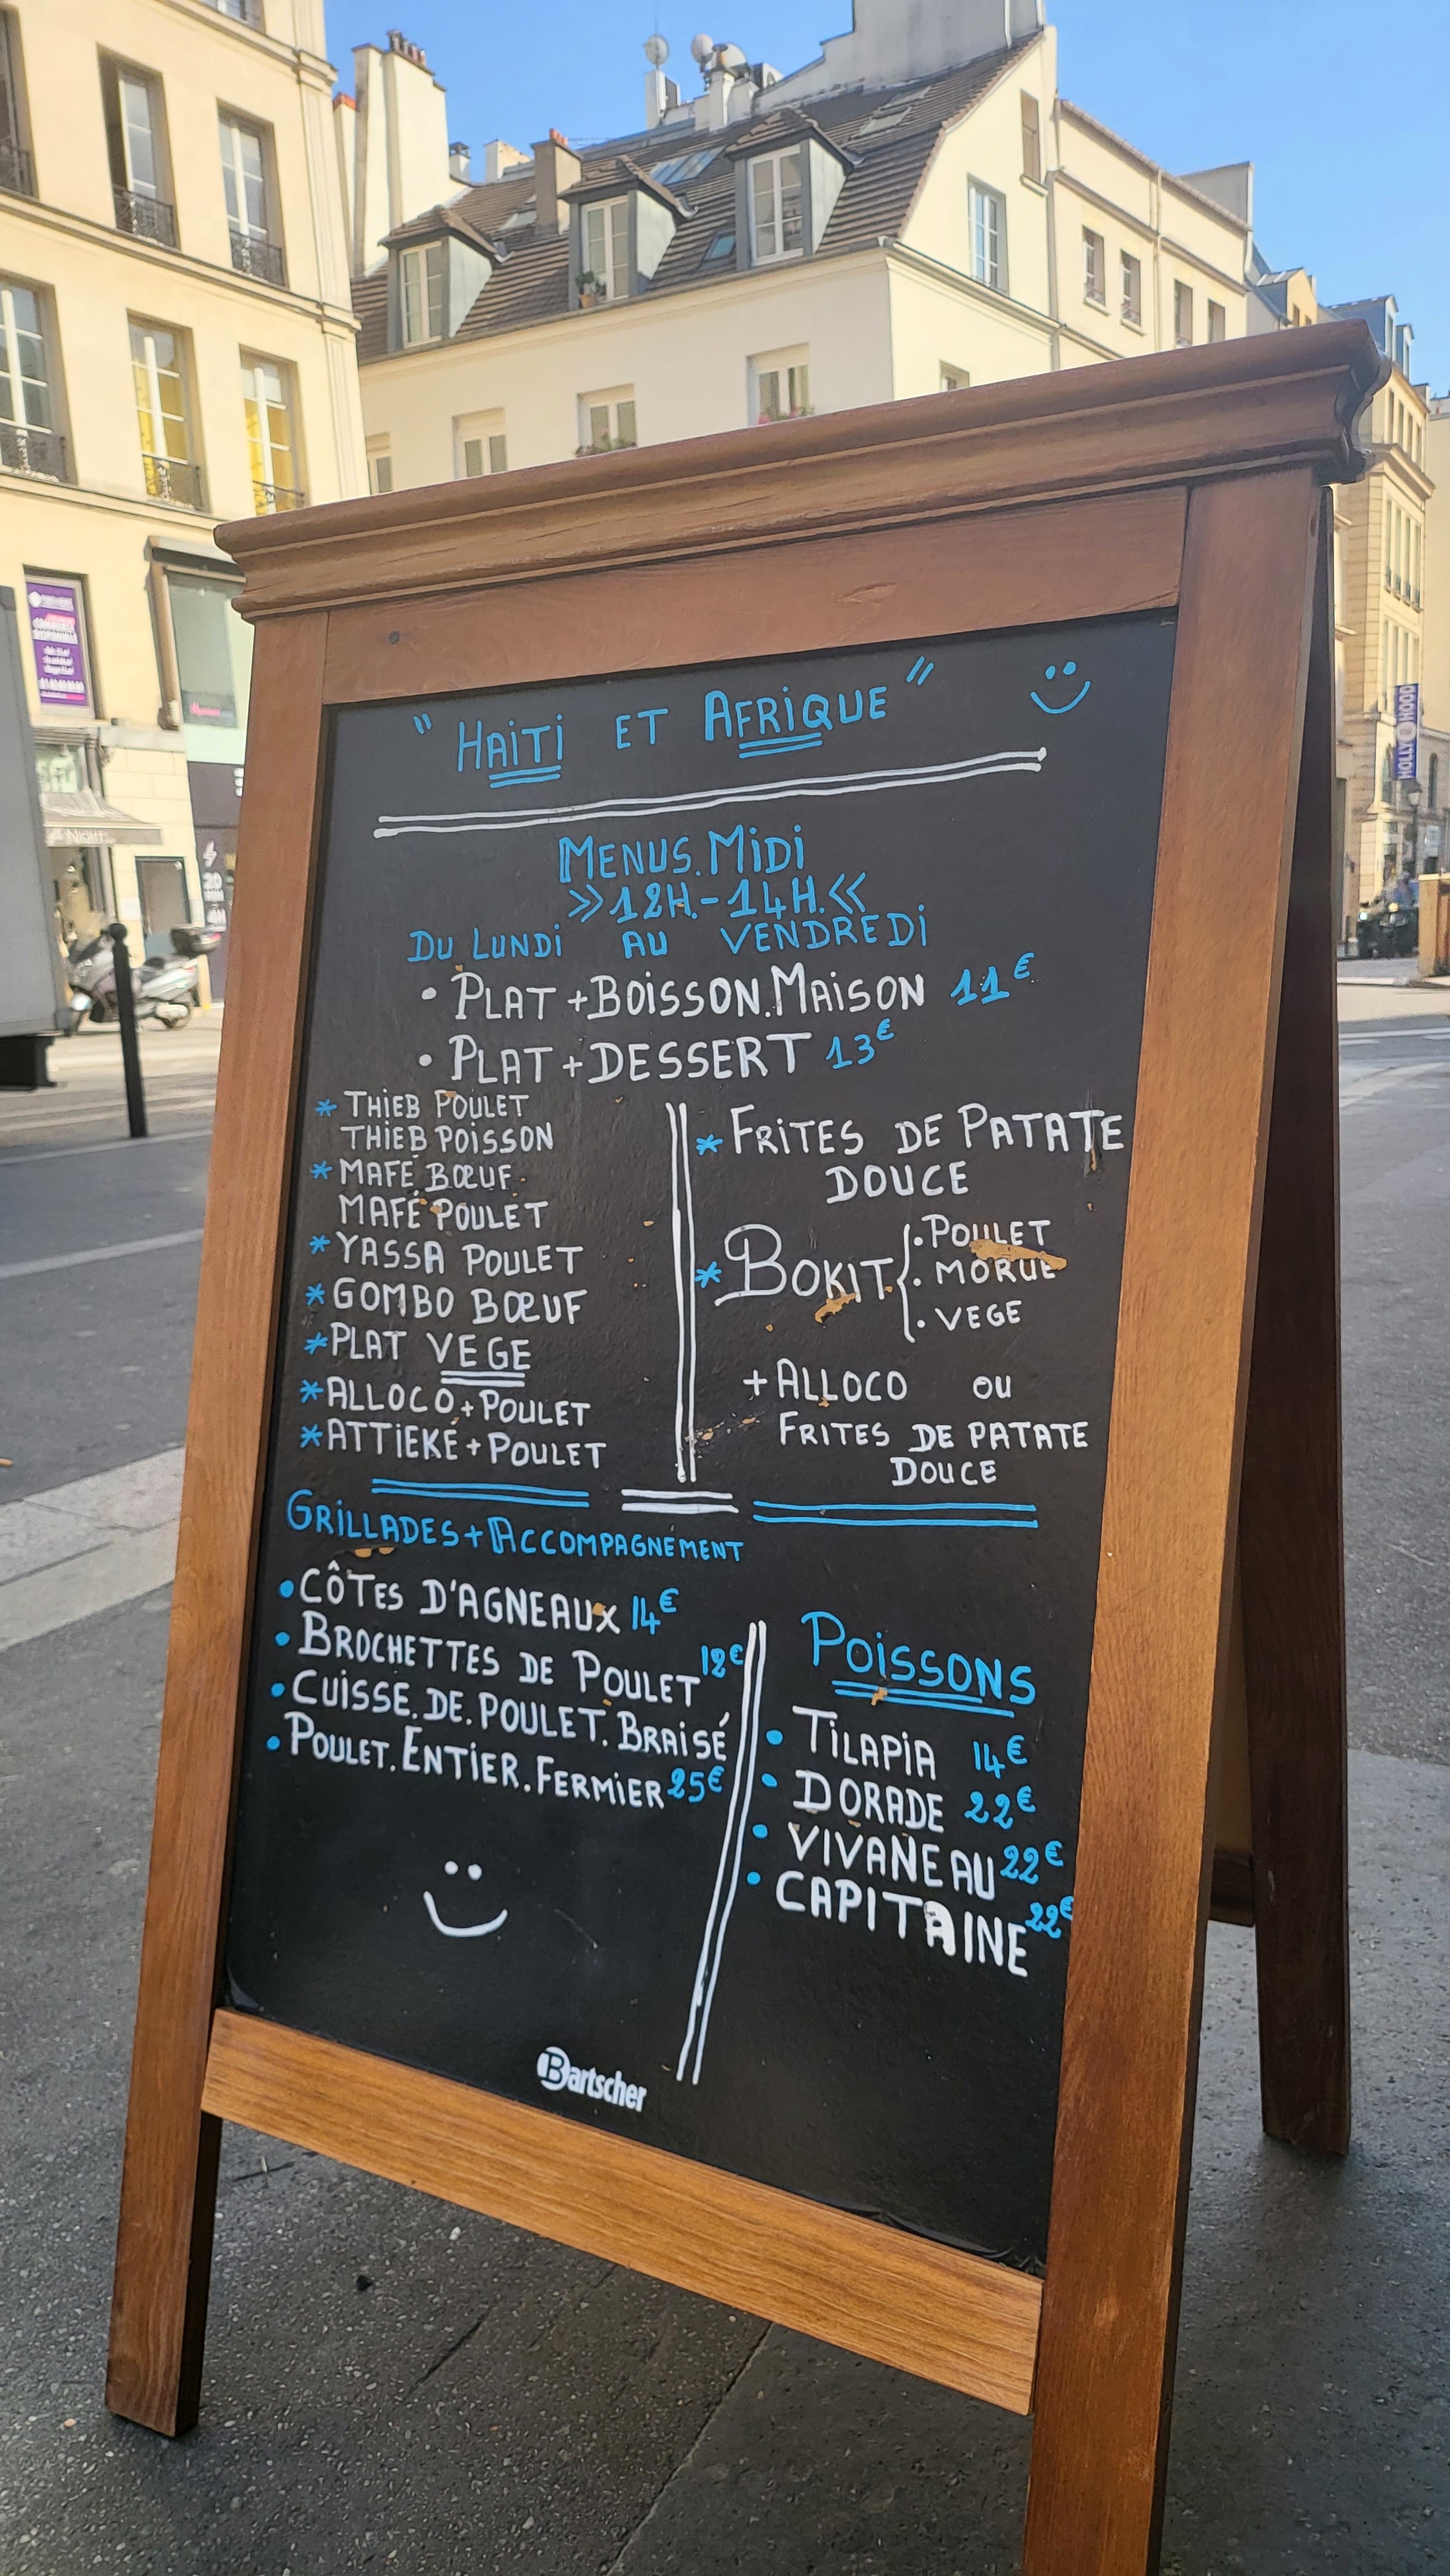 " HAITI ET AFRIQUE "
MENUS. MIDI
>> 12H. - 14H. <<
DU LUNDI AU VENDREDI
• PLAT + BOISSON. MAISON 11€
• PLAT + DESSERT 13€
* THIEB POULET
THIEB POISSON
* MAFÉ BŒUF
MAFÉ POULET
* YASSA POULET
* GOMBO BŒUF
* PLAT VEGE
* ALLOCO + POULET
* ATTIEKÉ + POULET
* FRITES DE PATATE
DOUCE
* BOKIT { • POULET
• MORUE
• VEGE
+ ALLOCO OU
FRITES DE PATATE
DOUCE
GRILLADES + ACCOMPAGNEMENT
• CÔTES D'AGNEAUX 14€
• BROCHETTES DE POULET 12€
• CUISSE. DE. POULET. BRAISÉ
• POULET. ENTIER. FERMIER 25€
POISSONS
• TILAPIA 14€
• DORADE 22€
• VIVANEAU 22€
• CAPITAINE 22€
Bartscher
HOLLYWOOD